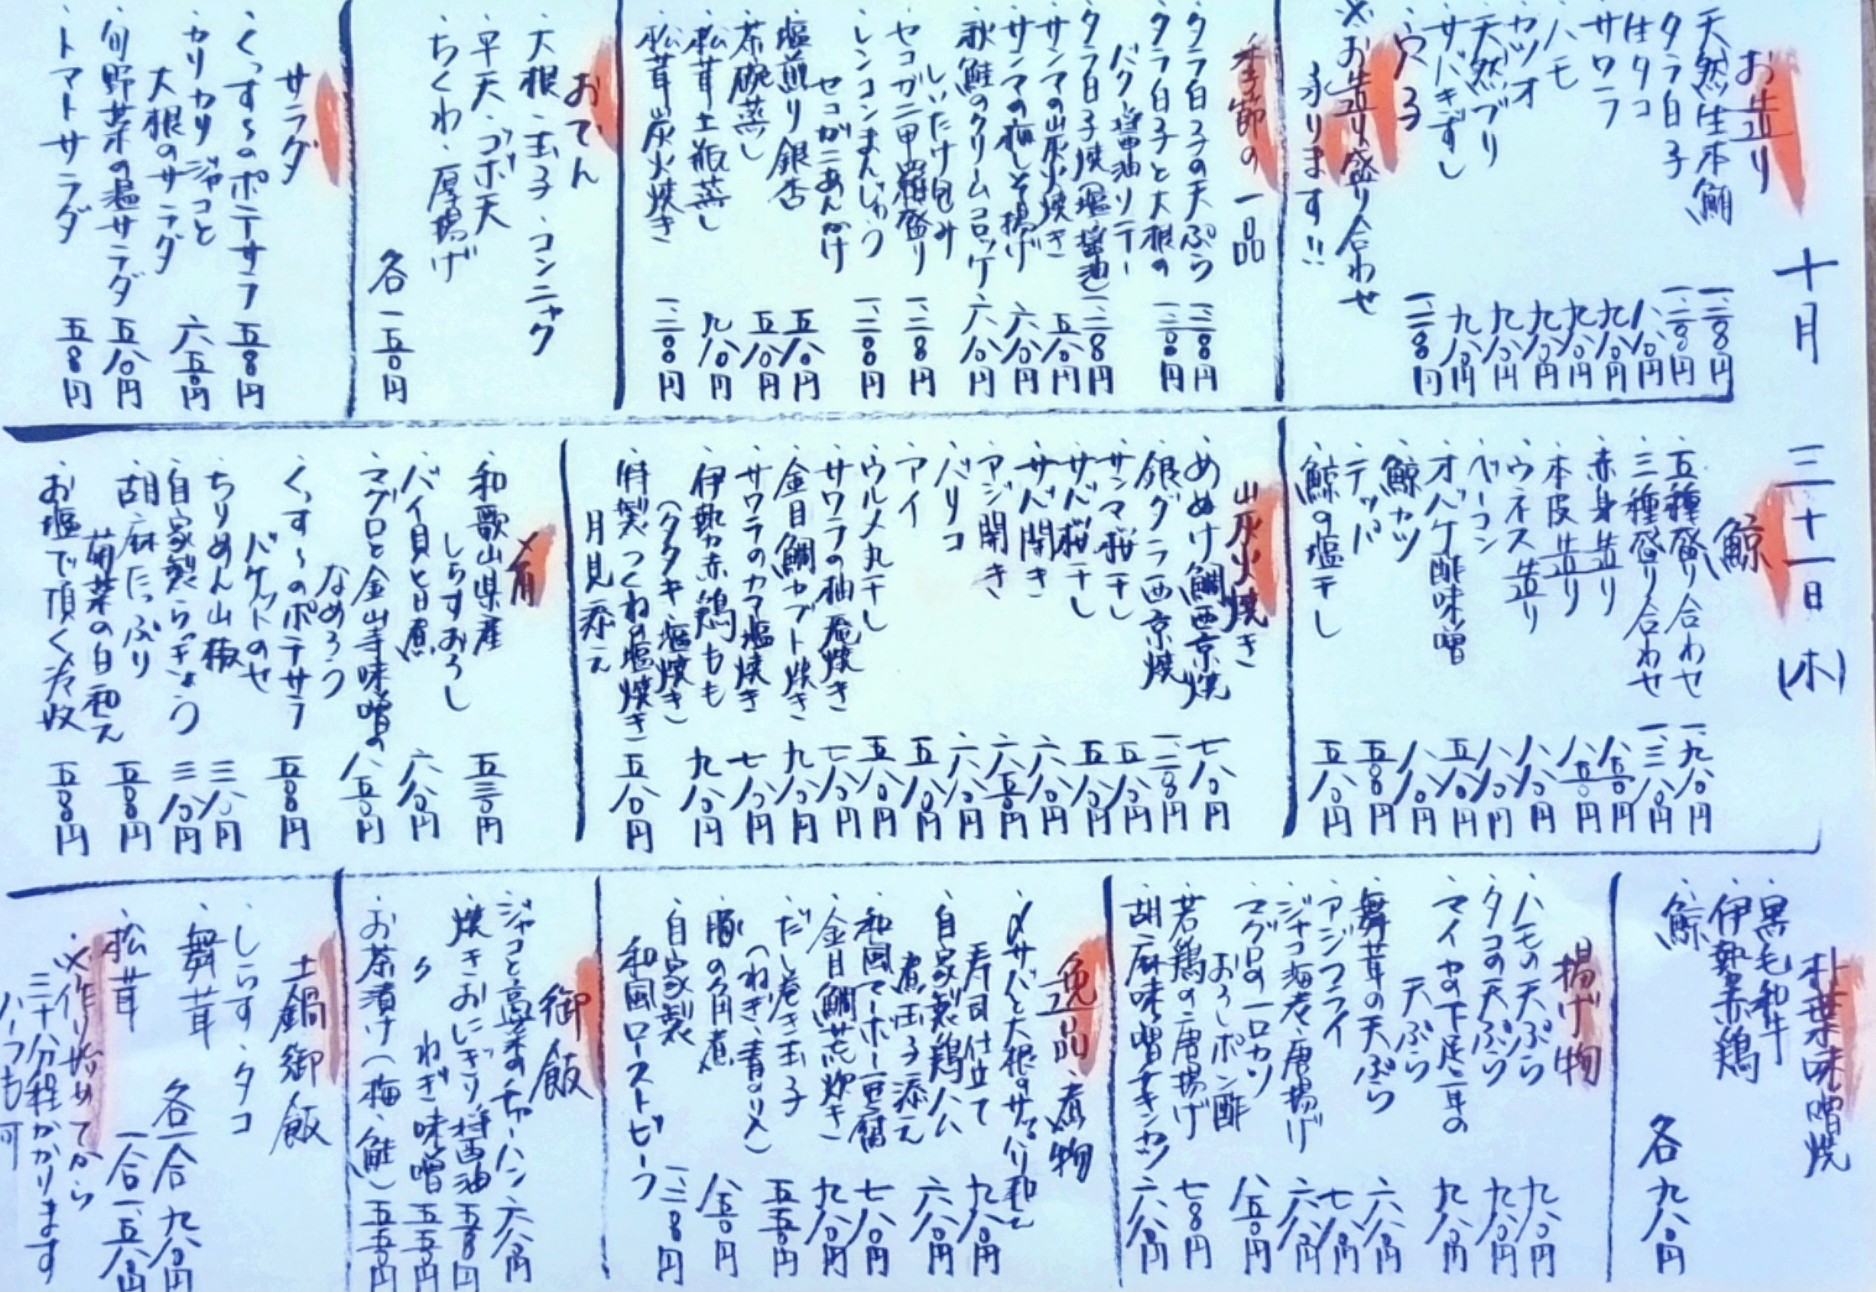 十月三十一日(木)
お造り
・天然生本鮪 一、二〇〇円
・タラ白子 一、二〇〇円
・生タコ 八八〇円
・サワラ 九八〇円
・ハモ 九八〇円
・カツオ 九八〇円
・天然ブリ 九八〇円
・サバきずし 九八〇円
・穴子 一、二〇〇円
※お造り盛り合わせ
承ります!!
季節の一品
・タラ白子の天ぷら 一、二〇〇円
・タラ白子と大根の
バター醤油ソテー 一、二〇〇円
・タラ白子焼(塩・醤油) 一、二〇〇円
・サンマの炭火焼き 五八〇円
・サンマの梅しそ揚げ 六八〇円
・秋鮭のクリームコロッケ 六八〇円
しいたけ包み
・セコガニ甲羅盛り
・レンコンまんじゅう
セコガニあんかけ 一、二〇〇円
・塩煎り銀杏 五八〇円
・茶碗蒸し 五八〇円
・松茸土瓶蒸し 九八〇円
・松茸炭火焼き 一、二〇〇円
おでん
・大根・玉子・コンニャク
・平天・ゴボ天
・ちくわ・厚揚げ
各一五〇円
サラダ
・くっす〜のポテサラ 五〇〇円
・カリカリジャコと
大根のサラダ 六五〇円
・旬野菜の塩サラダ 五八〇円
・トマトサラダ 五〇〇円
鯨
・五種盛り合わせ 一、九八〇円
・三種盛り合わせ 一、三八〇円
・赤身造り 八五〇円
・本皮造り 八五〇円
・ウネス造り 八八〇円
・ベーコン 八八〇円
・オバケ酢味噌 五八〇円
・鯨カツ 八八〇円
・テッパ 五〇〇円
・鯨の塩干し 五八〇円
炭火焼き
・めぬけ鯛西京焼 七八〇円
・銀ダラ西京焼 一、二〇〇円
・サンマ桜干し 五八〇円
・サバ桜干し 五八〇円
・サバ開き 六八〇円
・アジ開き 六五〇円
・バリコ 六八〇円
・アイ 五八〇円
・ウルメ丸干し 五八〇円
・サワラの柚庵焼き 七八〇円
・金目鯛カブト焼き 九八〇円
・サワラのカマ塩焼き 七八〇円
・伊勢赤鶏もも
(タタキ・塩焼き) 九八〇円
・特製つくね(塩焼き) 五八〇円
月見添え
〆肴
・和歌山県産
しらすおろし 五三〇円
・バイ貝旨煮 六八〇円
・マグロと金山寺味噌の
なめろう 八五〇円
・くっす〜のポテサラ
バケットのせ 五〇〇円
・ちりめん山椒 三八〇円
・自家製らっきょう 三八〇円
・胡麻たっぷり
菊菜の白和え 五〇〇円
・お塩で頂く冷奴 五〇〇円
朴葉味噌焼
・黒毛和牛
・伊勢赤鶏
・鯨
各九八〇円
揚げ物
・ハモの天ぷら 九八〇円
・タコの天ぷら 九八〇円
・マイカの下足・耳の
天ぷら 九八〇円
・舞茸の天ぷら 六八〇円
・アジフライ 七八〇円
・ジャコ海老唐揚げ 六八〇円
・マグロの一口カツ
おろしポン酢 八五〇円
・若鶏の唐揚げ 七〇〇円
・胡麻味噌チキンカツ 六八〇円
逸品・煮物
・〆サバと大根のサッパリ和え
寿司仕立て 九八〇円
・自家製鶏ハム
煮玉子添え 六八〇円
・和風マーボー豆腐 七八〇円
・金目鯛荒炊き 九八〇円
・だし巻き玉子
(ねぎ、青のり入) 五五〇円
・豚の角煮 八五〇円
・自家製
和風ローストビーフ 一、二〇〇円
御飯
・ジャコと高菜のチャーハン 六八〇円
・焼きおにぎり醤油 五五〇円
・〃 ねぎ味噌 五五〇円
・お茶漬け(梅・鮭) 五五〇円
土鍋御飯
・しらす・タコ
・舞茸 各一合九八〇円
・松茸 一合一、五八〇円
※作り始めてから
三十分程かかります
ハーフも可